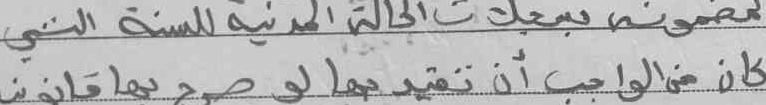 لمضمونه بسجلات الحالة المدنية للسنة التي
كان من الواجب أن تقيد بها لو صرح بها قانونا